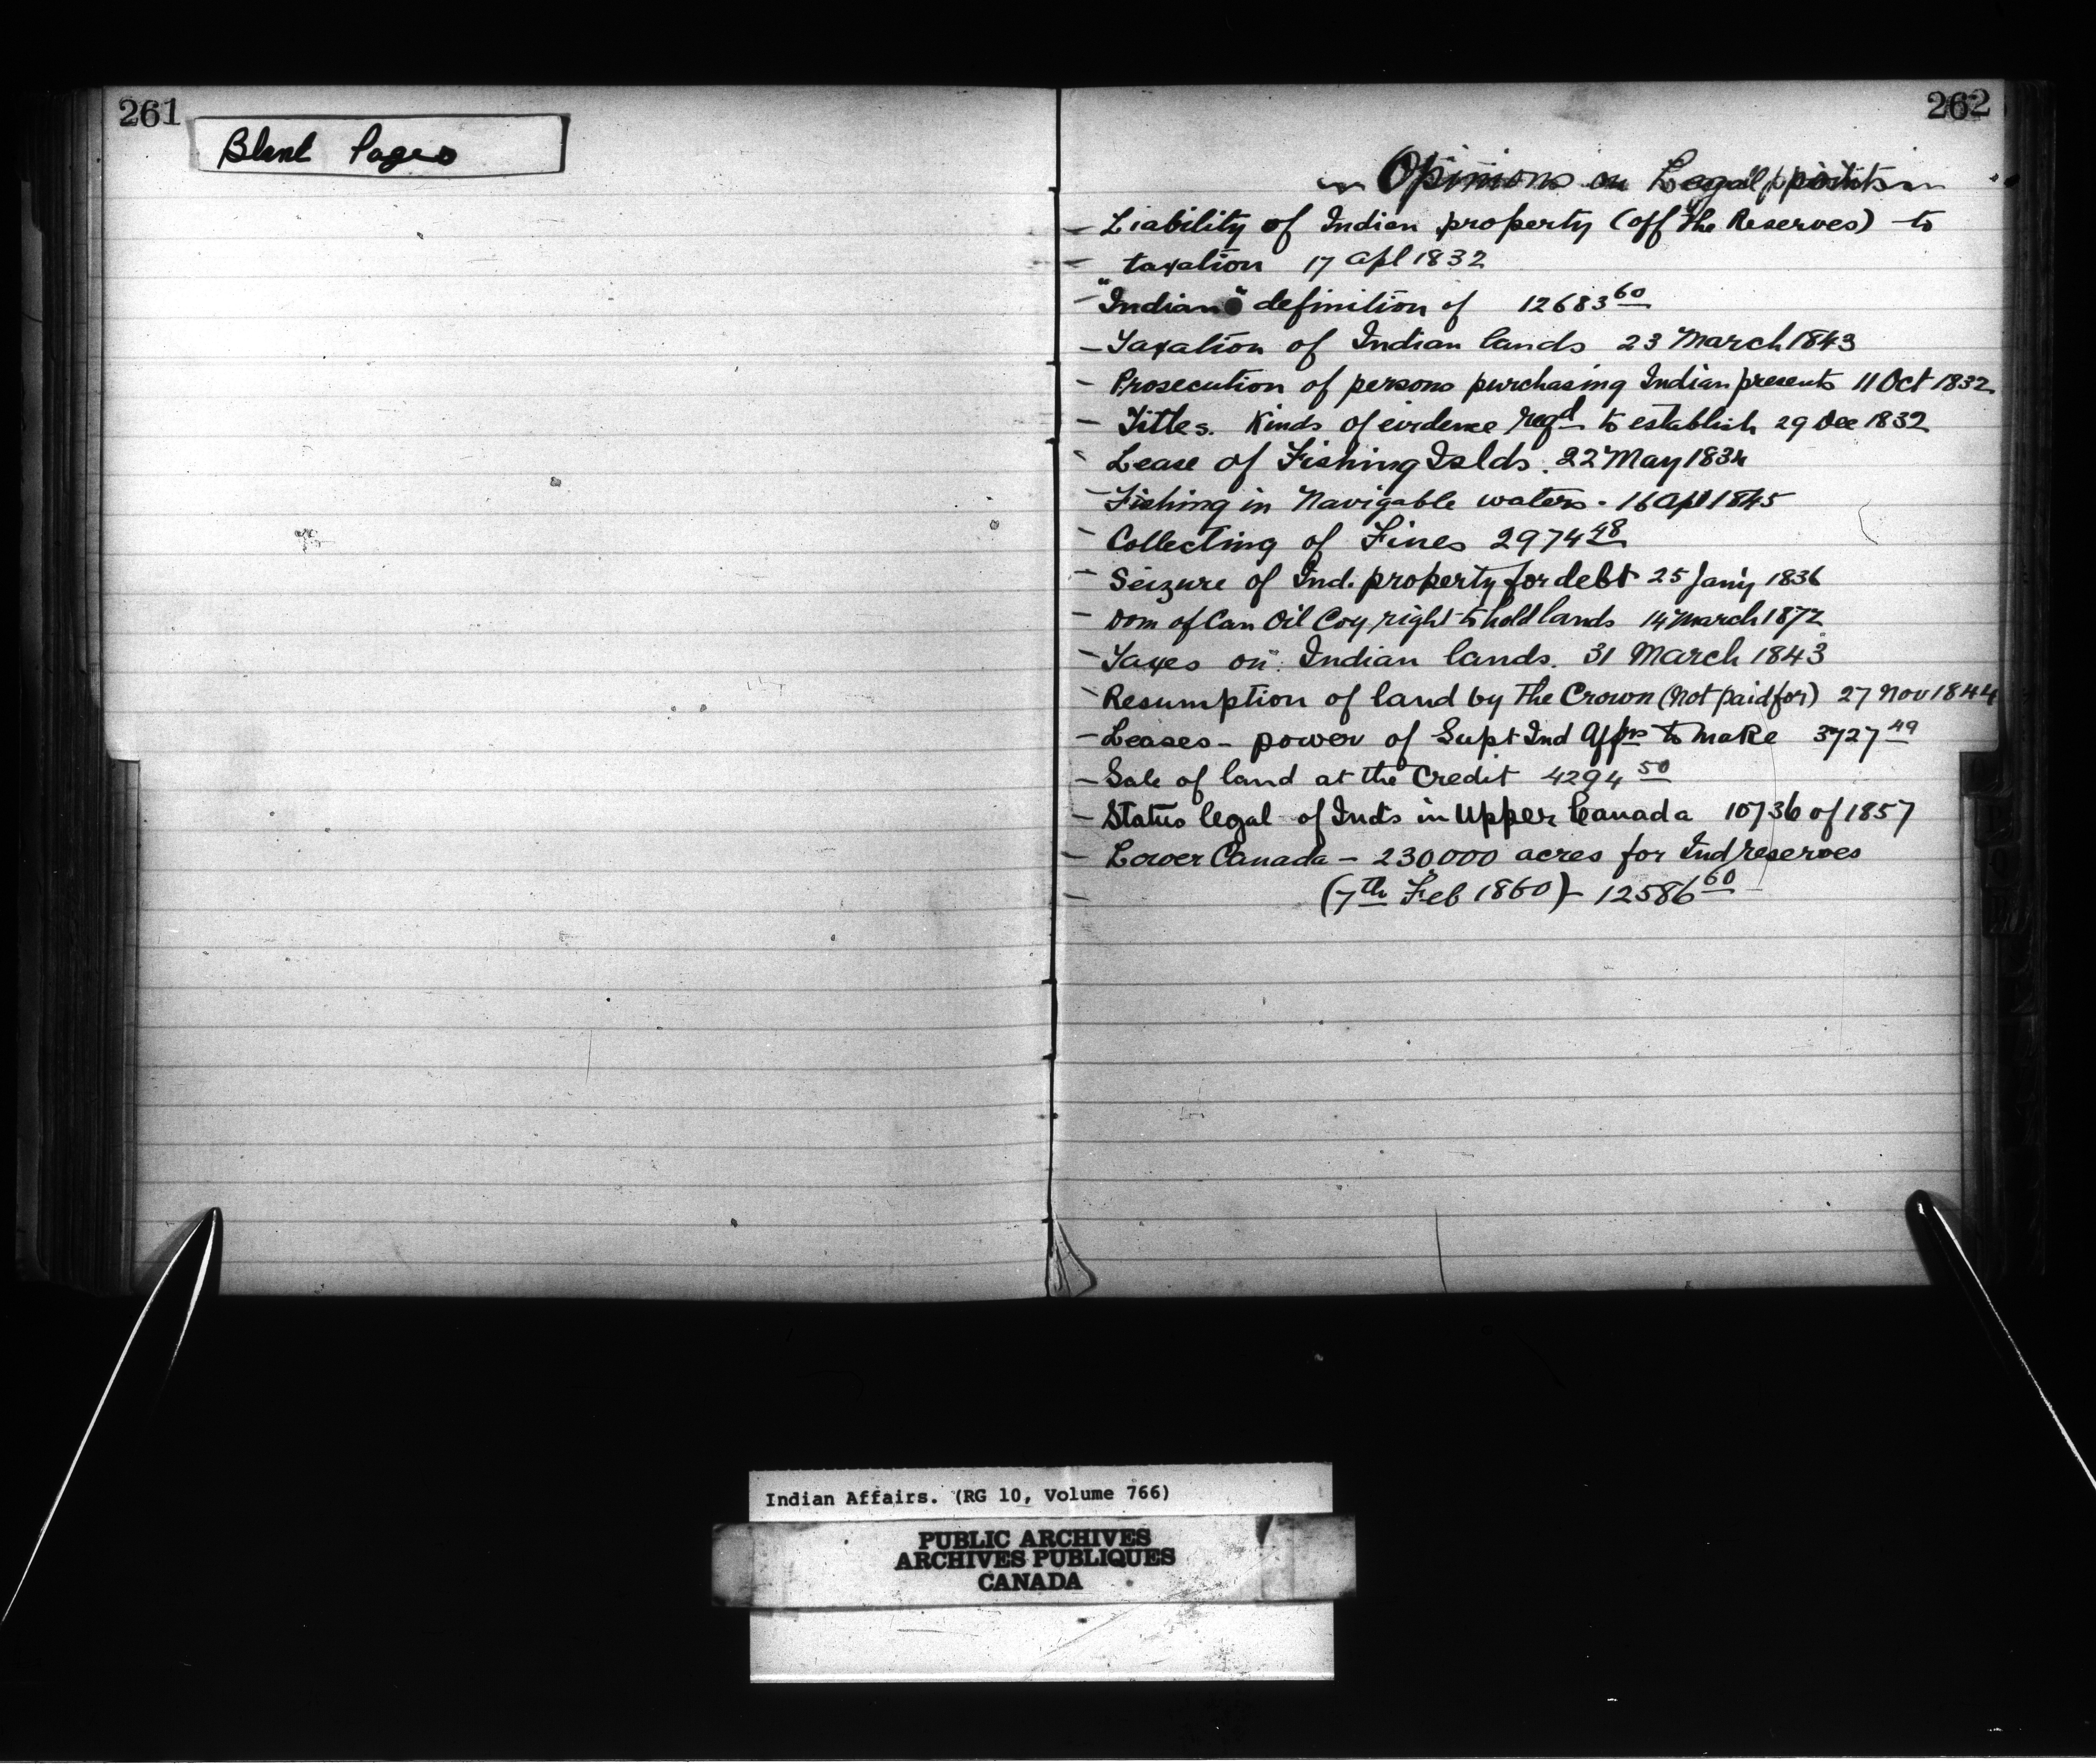 261
Blank Pages
262
Opinions on Legal points
- Liability of Indian property (off the Reserves) to
- taxation 17 Apl 1832
- "Indian" definition of 12683 60
- Taxation of Indian lands 23 March 1843
- Prosecution of persons purchasing Indian presents 11 Oct 1832
- Titles. Kinds of evidence reqd to establish 29 Dec 1832
- Lease of Fishing Islds. 22 May 1834
- Fishing in Navigable waters - 16 Apl 1845
- Collecting of Fines 2974 48
- Seizure of Ind. property for debt 25 Jany 1836
- Dom of Can Oil Coy right to hold lands 14 March 1872
- Taxes on Indian lands. 31 March 1843
- Resumption of land by the Crown (not paid for) 27 Nov 1844
- Leases - power of Supt Ind Affrs to make 3727 49
- Sale of land at the Credit 4294 50
- Status legal of Inds in Upper Canada 10736 of 1857
- Lower Canada - 230000 acres for Ind reserves
- (7th Feb 1860) - 12586 60
Indian Affairs. (RG 10, Volume 766)
PUBLIC ARCHIVES
ARCHIVES PUBLIQUES
CANADA